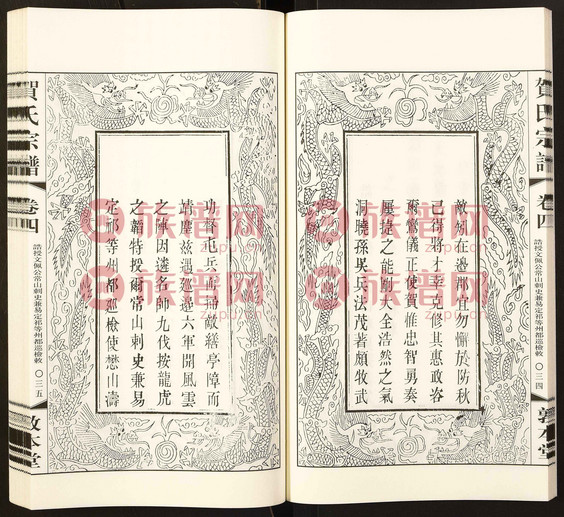 賀氏宗譜
卷四
誥授文佩公常山刺史兼易定祁等州都巡檢敕
〇三四
敦本堂
敵矧在邊郡宜勿懈於防秋
已得將才幸克修其惠政咨
爾鸞儀正使賀惟忠智勇奏
屢捷之能剛大全浩然之氣
洞曉孫吳兵法茂著頗牧武
功督屯兵
敵繕亭障而
靖塵玆遇巡邊六軍開風雲
之陣因遴名師九伐按龍虎
之韜特授爾常山刺史兼易
定祁等州都巡檢使懋山濤
賀氏宗譜
卷四
誥授文佩公常山刺史兼易定祁等州都巡檢敕
〇三五
敦本堂
族譜网
zupu.cn
族譜网
zupu.cn
族譜网
zupu.cn
族譜网
zupu.cn